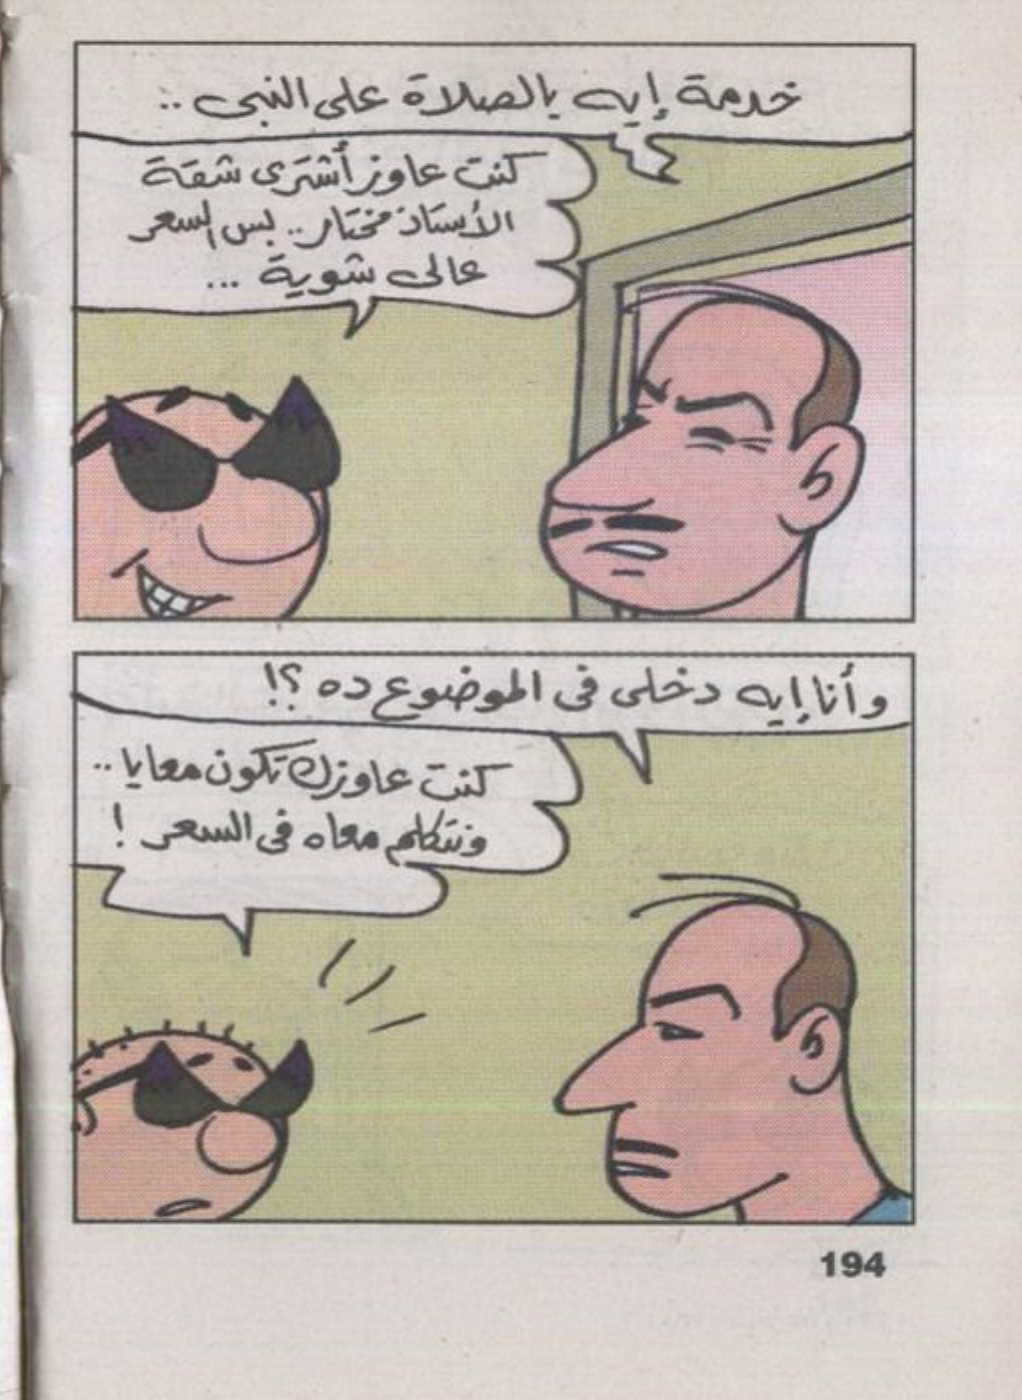 خدمة إيه بالصلاة على النبى ..
كنت عاوز أشترى شقة
الأستاذ مختار .. بس السعر
عالى شوية ...
وأنا إيه دخلى فى الموضوع ده ؟!
كنت عاوزك تكون معايا ..
ونتكلم معاه فى السعر !
194